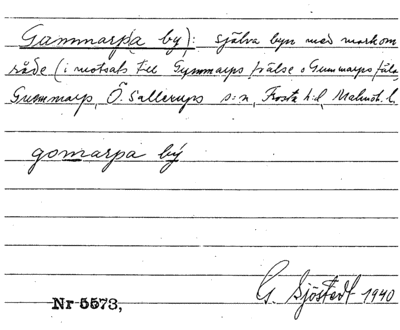 Gammarpa by): själva byn med markom
råde (i motsats till Gummarps frälse o Gummarps fälad
Gummarp, Ö. Sallerups s:n, Frosta h:d, Malmöh. l.
gomarpa bý
G. Sjöstedt 1940
Nr 5573,